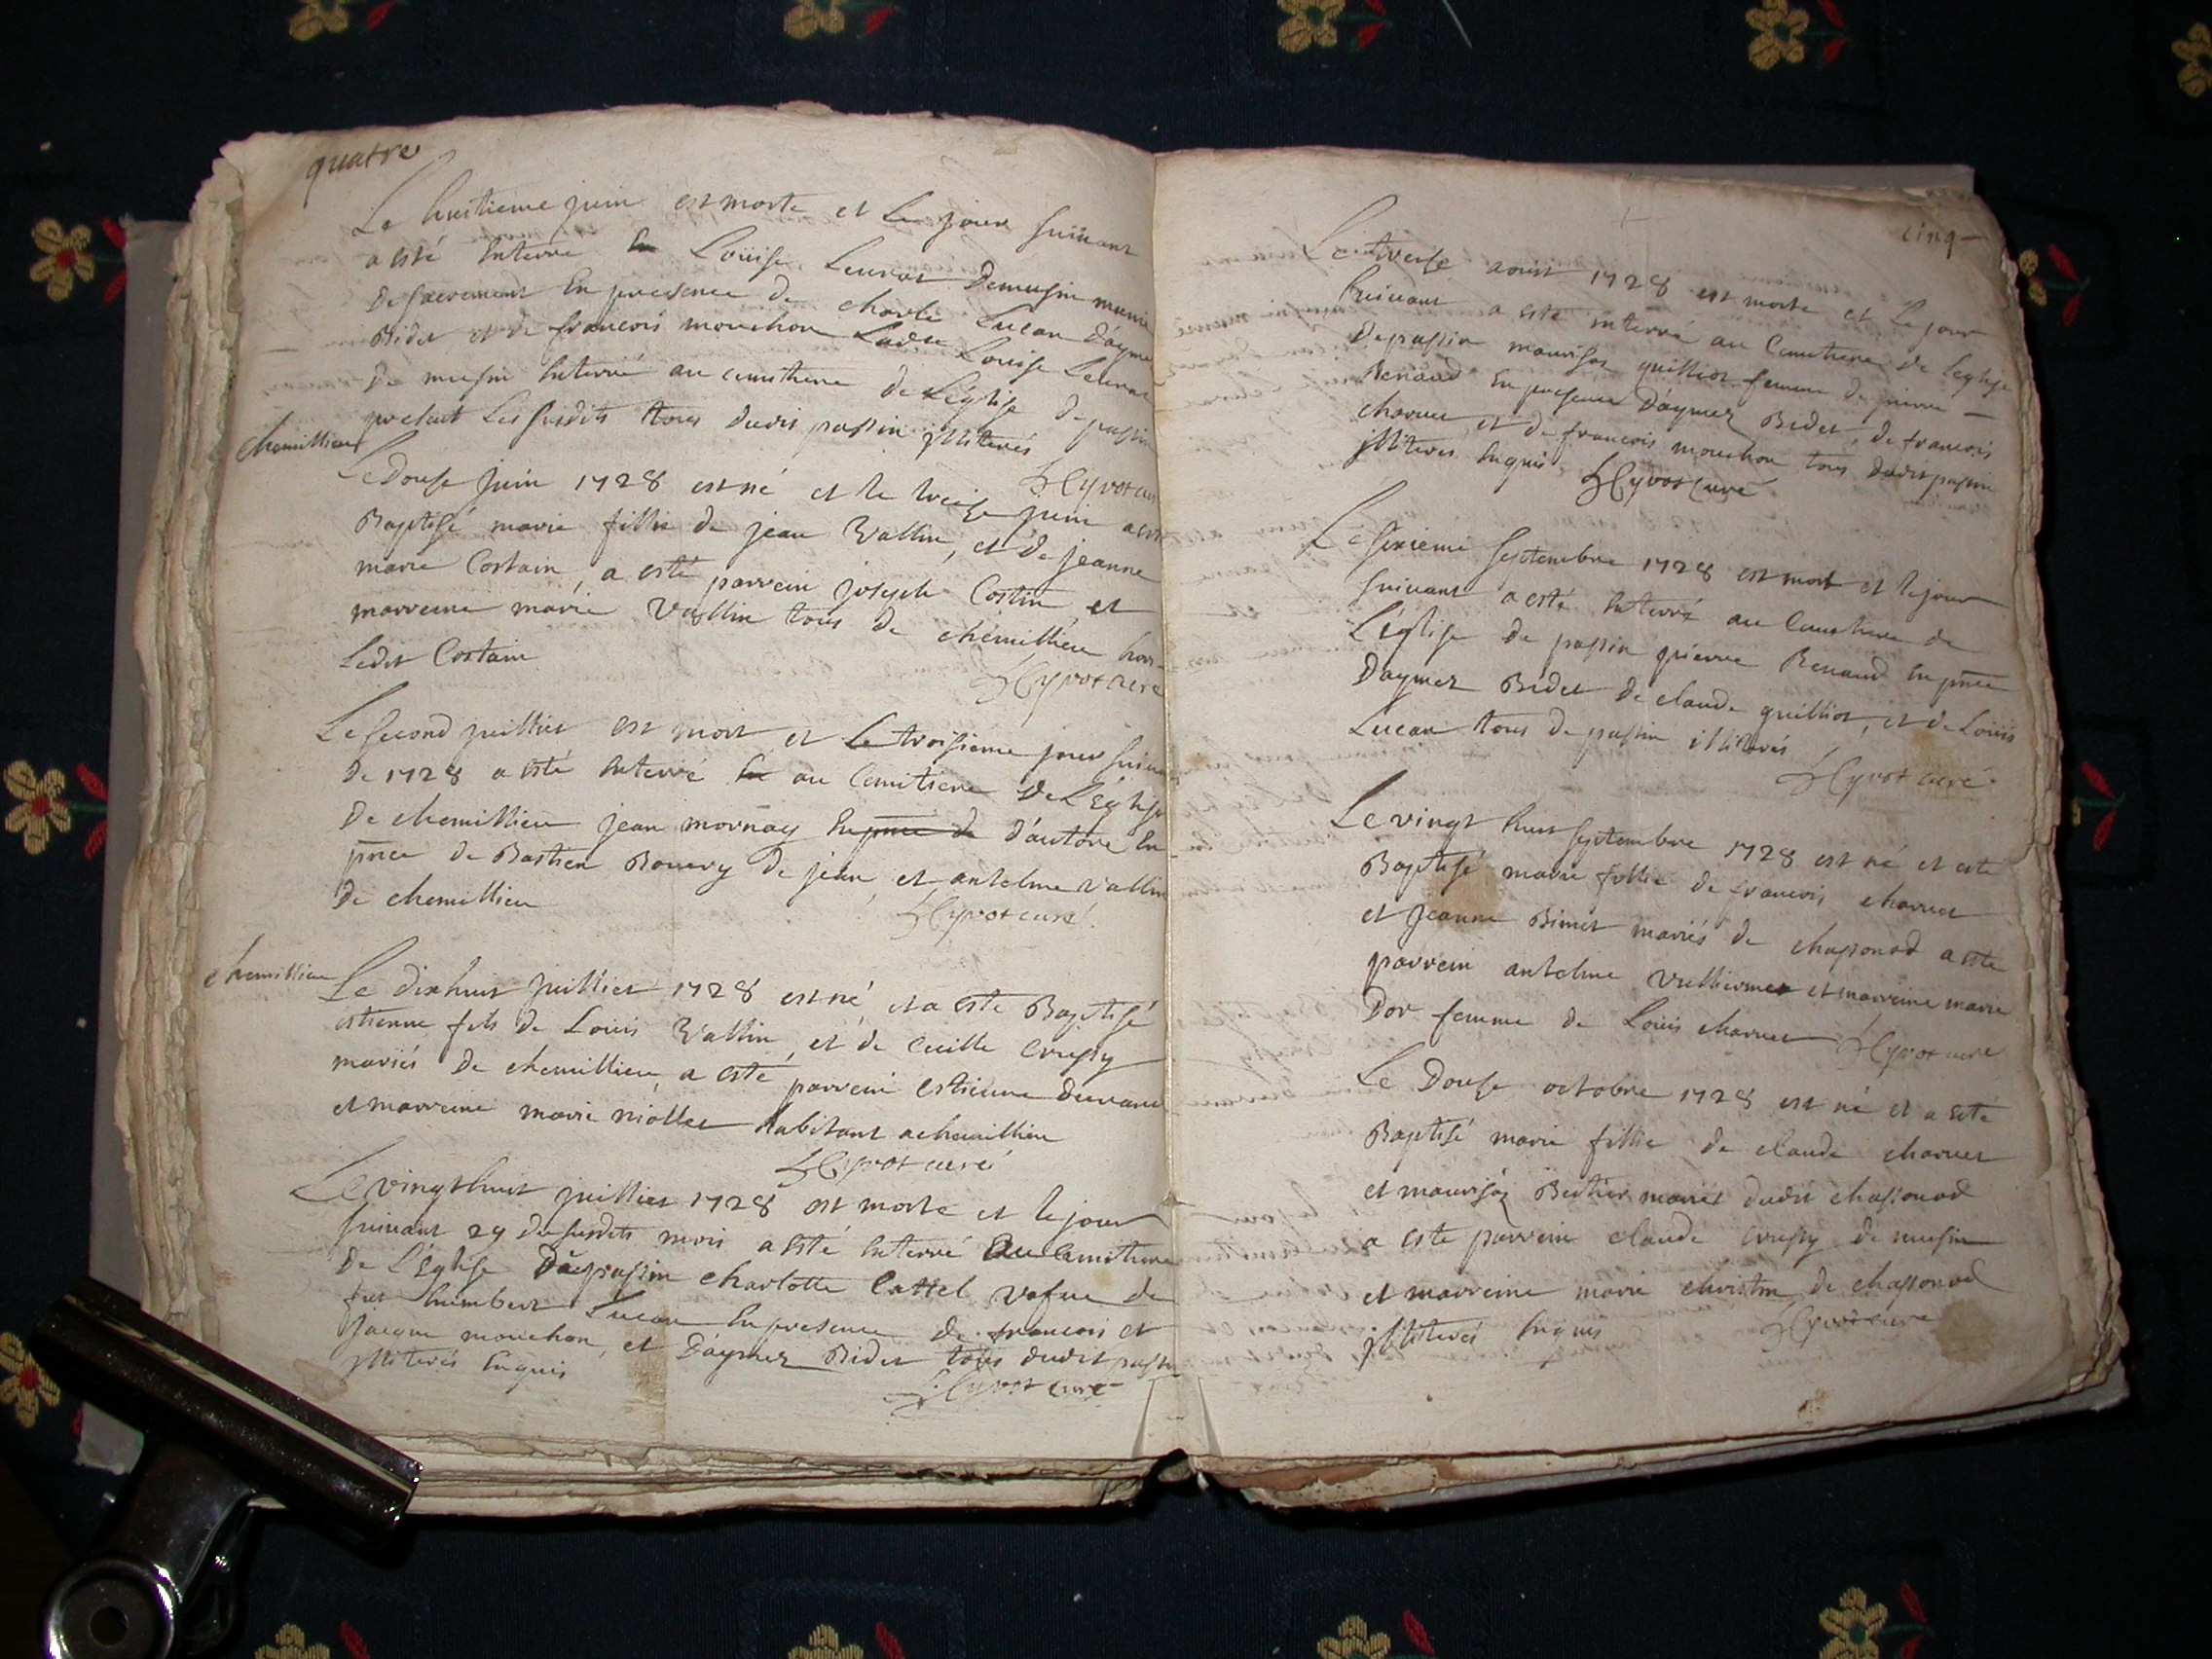 quatre
Le huitieme juin est morte et Le jour suivant
a esté Enterré Loüise Leurat Demusin munie
De sacrement En presence de charle Lucan d'aymé
Bider et de francois mouchon Ladite Louise Leurat
De musin Enterré au cimithere de L'église de passin
presant Les susdits tous dudit passin illiterés
Hyvot curé
chemillieu
Le Douse juin 1728 est né et le treise juin a esté
Baptisé marie fillie de jean Vallin, et de jeanne
marie Costain, a esté parrein joseph Costin et
marreine marie Vallin tous de chemillieu hors
Ledit Costain
Hyvot curé
Le second juillier est mort et Le troisieme jour suivant
de 1728 a esté Enterré au Cemitiere de L'Eglise
De chemillieu jean mornay d'autore En
pnce de Bastien Bouvry de jean et antelme Vallin
de chemillieu
Hyvot curé
chemillieu
Le dixhuit juillier 1728 est né, et a esté Baptisé
estienne fils de Louis Vallin, et de Cecille Crussy
mariés De chemillieu, a esté parrein estienne Durand
et marreine marie niollet habitant a chemillieu
Hyvot curé
Le vingt huit juillier 1728 est morte et le jour
suivant 29 du susdits mois a esté Enterré Au Cemitiere
De L'Eglise De passin charlotte Cattel vefue de
fut humbert Lucan En presence de francois et
Jacque mouchon, et d'aymez Bider tous dudit passin
illiterés Enquis
Hyvot curé
cinq
Le treise aoust 1728 est morte et Le jour
suivant a esté interré au Cimithiere de Leglise
De passin maurise guilliot femme de pierre
Renaud En presence D'aymez Bider, de francois
charuet et de francois mouchon tous dudit passin
illiteres Enquis
Hyvot Curé
Le sixieme septembre 1728 est mort et le jour
suivant a esté Enterré au Cimithiere de
L'église de passin pierre Renaud En pnce
D'aymez Bider de claude guilliot, et de Louis
Lucan tous de passin illiterés
Hyvot curé
Le vingt huit septembre 1728 est né et esté
Baptisé marie fillie de francois charuet
et Jeanne Binet mariés de chassonod a esté
parrein antelme Vulliermet et marreine marie
Dor femme de Louis charuet
Hyvot curé
Le Douse octobre 1728 est né et a esté
Baptisé marie fillie de claude charuet
et maurise Bertier mariés dudit chassonod
a esté parrein claude Crussy de musin
et marreine marie christin de chassonod
illiterés Enquis
Hyvot curé